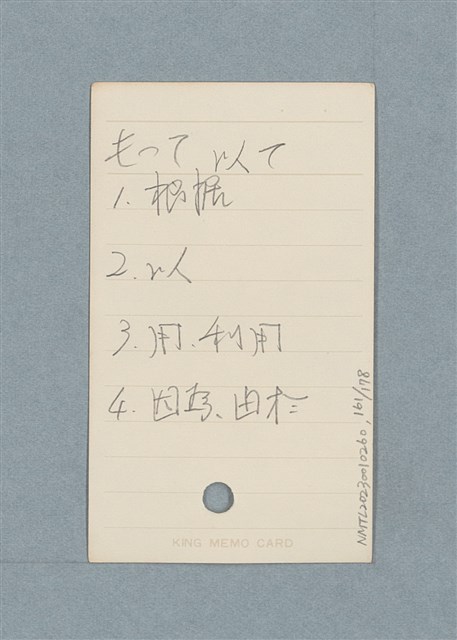 もって 以て
1. 根据
2. 以
3. 用、利用
4. 因為、由於
KING MEMO CARD
NMTL20230010260, 161/178